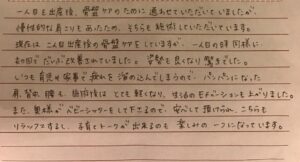 一人目を出産後、骨盤ケアのために通わせていただいていましたが、
慢性的な肩こりもあったため、そちらも施術していただいています。
現在は二人目出産後の骨盤ケアをしていますが、一人目の時同様に
初回でだいぶ改善されていました。姿勢も良くなり驚きでした。
いつも育児や家事で疲れを溜め込んでしまうので、パンパンになった
肩、背中、腰も、施術後はとても軽くなり、生活のモチベーションも上がりました。
また、奥様がベビーシッターもして下さるので、安心して預けられ、こちらも
リラックスするし、子育てトークが出来るのも楽しみの一つになっています。